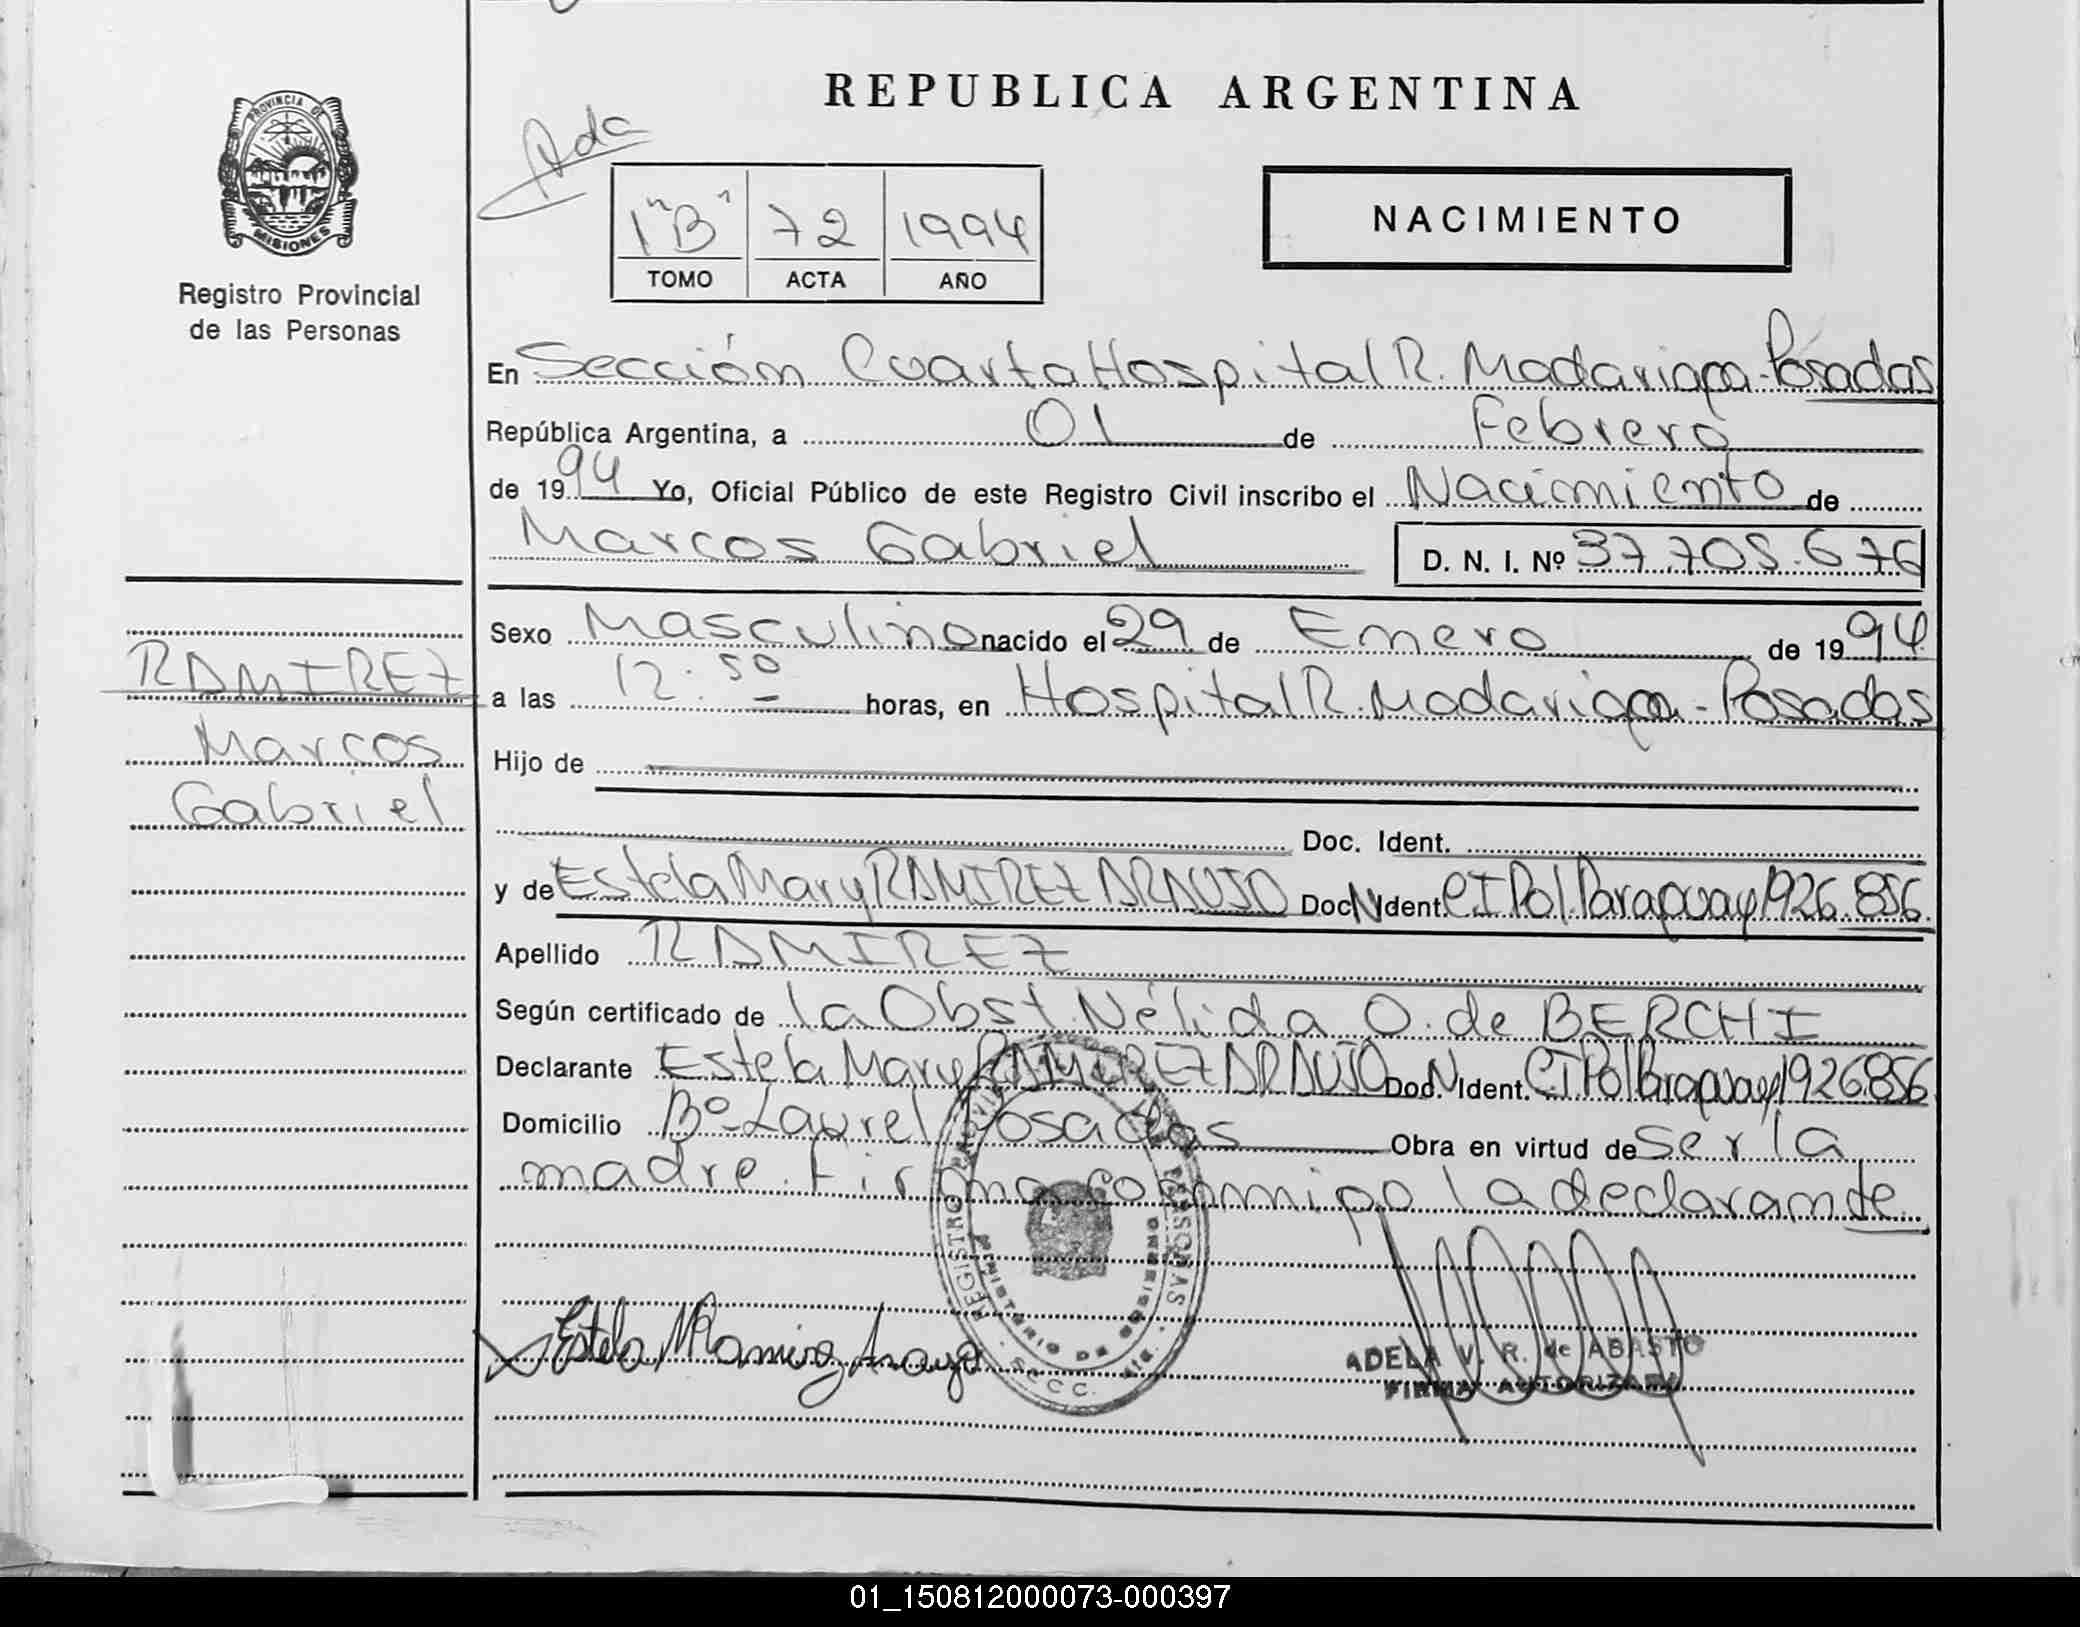 REPUBLICA ARGENTINA
PROVINCIA DE
MISIONES
Registro Provincial
de las Personas
Ada
1 "B" 72 1994
TOMO ACTA AÑO
NACIMIENTO
En Sección Cuarta Hospital R. Madariaga - Posadas
República Argentina, a 01 de Febrero
de 1994 Yo, Oficial Público de este Registro Civil inscribo el Nacimiento de
Marcos Gabriel D. N. I. Nº 37.705.676
Sexo Masculino nacido el 29 de Enero de 1994
a las 12:50 horas, en Hospital R. Madariaga - Posadas
Hijo de
Doc. Ident.
y de Estela Mary RAMIREZ ARAUJO Doc N Ident. C I Pol. Paraguay 1926.856.
Apellido RAMIREZ
Según certificado de la Obst. Nélida O. de BERCHI
Declarante Estela Mary RAMIREZ ARAUJO Doc. N Ident. C.I Pol Paraguay 1926856
Domicilio Bº Laurel Posadas Obra en virtud de Ser la
madre. Firma conmigo la declarante.
RAMIREZ
Marcos
Gabriel
REGISTRO PROVINCIAL PERSONAS
MINISTERIO DE GOBIERNO
Estela M Ramirez Araujo
ADELA V. R. de ABASTO
FIRMA AUTORIZADA
01_150812000073-000397